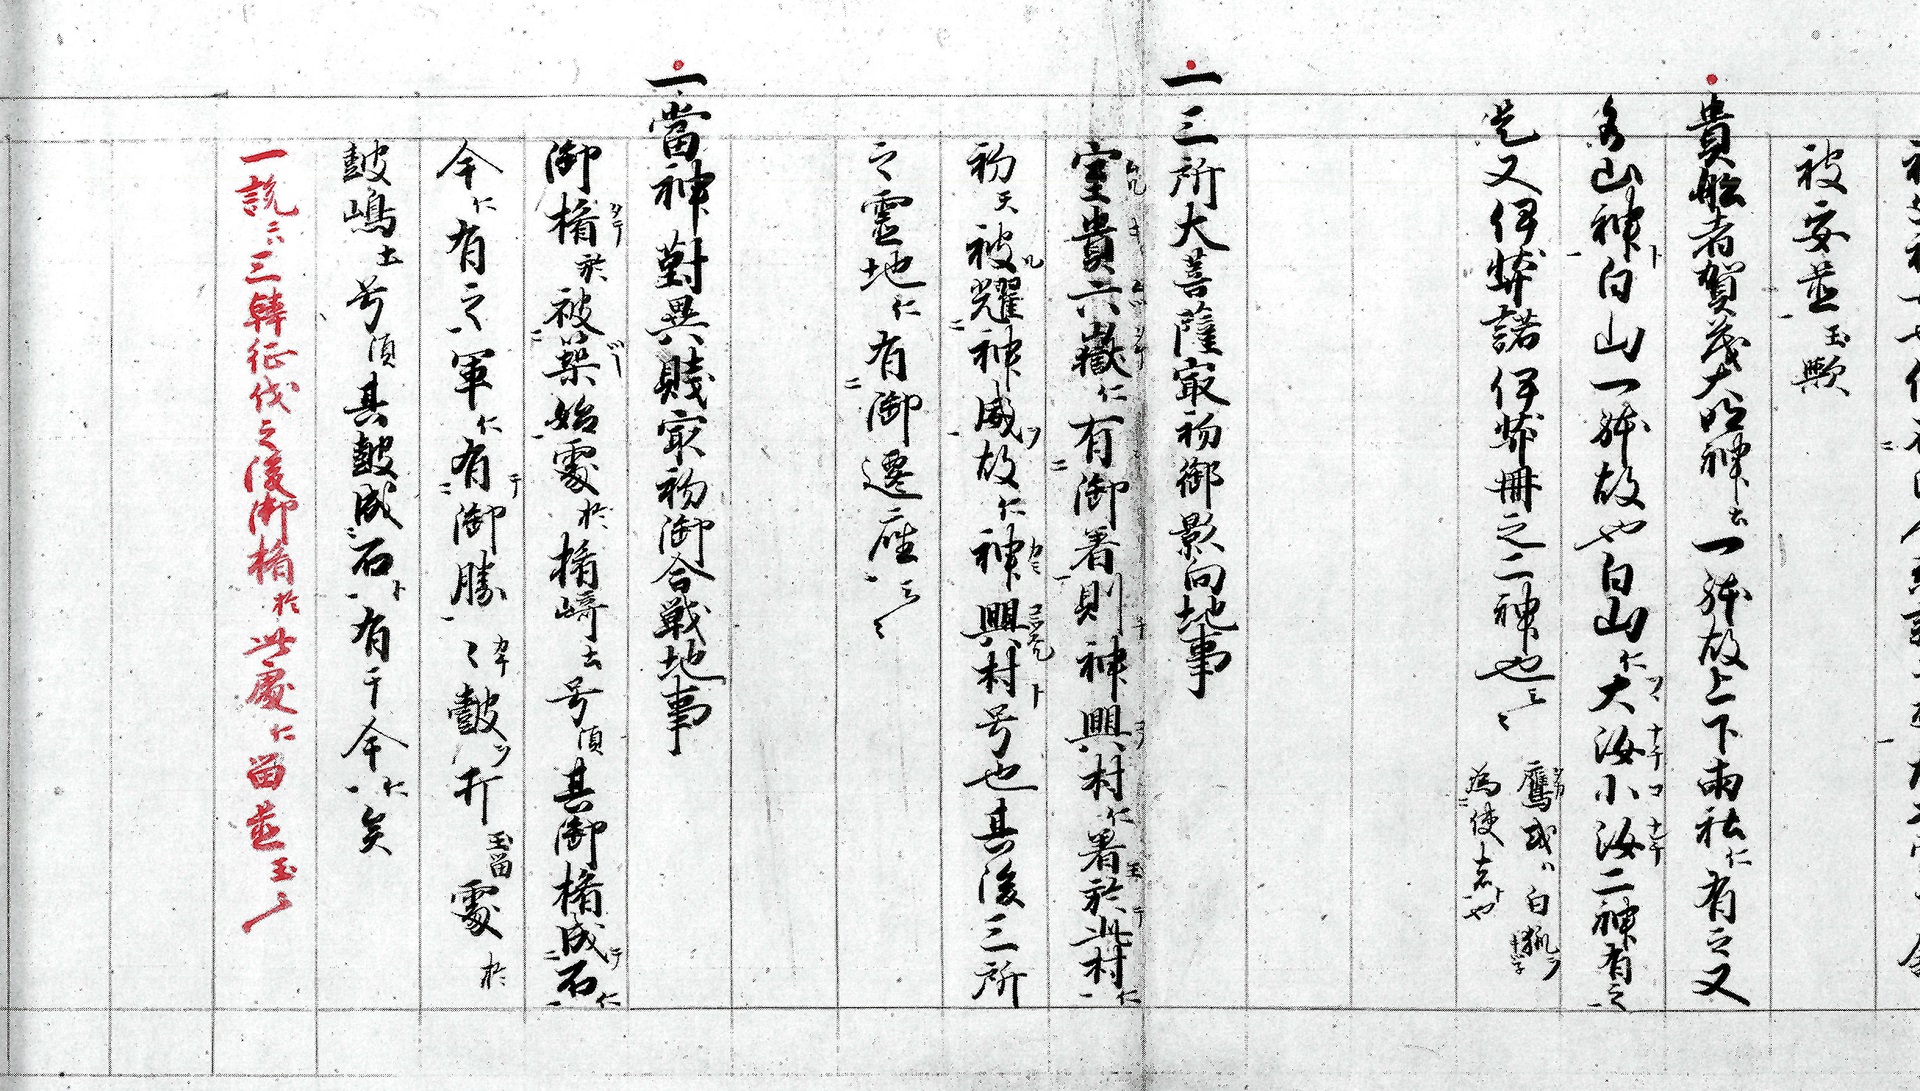 被安並玉歟
貴船者賀茂大明神云一躰故上下両社仁有之又
名山神ト白山一躰故也白山仁大汝小汝二神有之
是又伊弉諾伊弉冊之二神也云々 鷹或ハ白狐ヲ為使者ト也
一三所大菩薩最初御影向地事
室貴六嶽仁有御着則神興村仁着玉於此村仁
初天被耀神威故仁神興村ト号也其後三所
之霊地仁有御遷座云々
一當神對異賊最初御合戦地事
御楯於被築始處於楯崎云号須其御楯成テ石仁
今仁有之軍仁有御勝々皷ツ打玉留處於
皷嶋土号須其皷成石ト有于今仁矣
一説ニハ三韓征伐之後御楯於此處仁留並玉云々